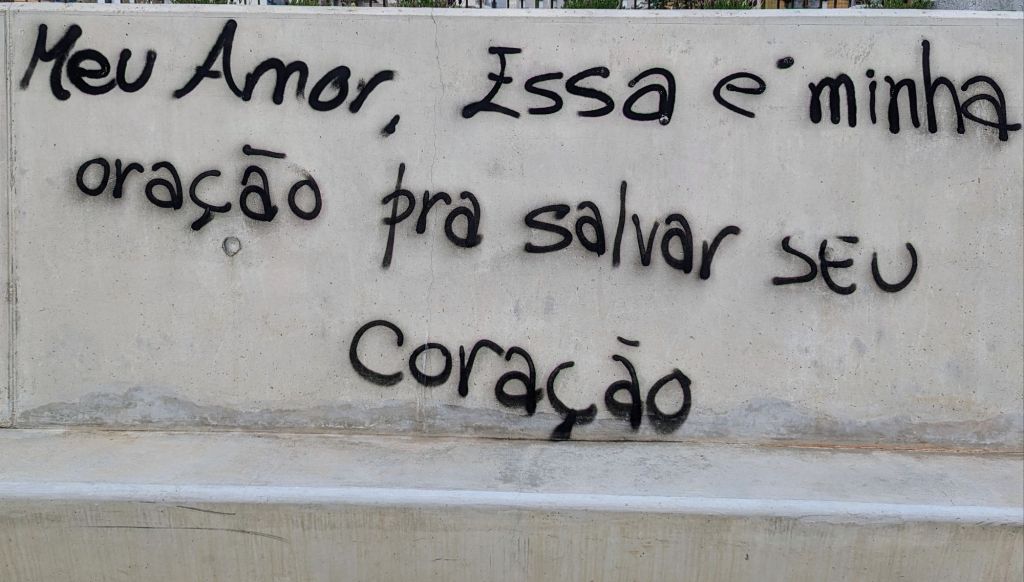 Meu Amor, Essa é minha
oração pra salvar SEU
Coração